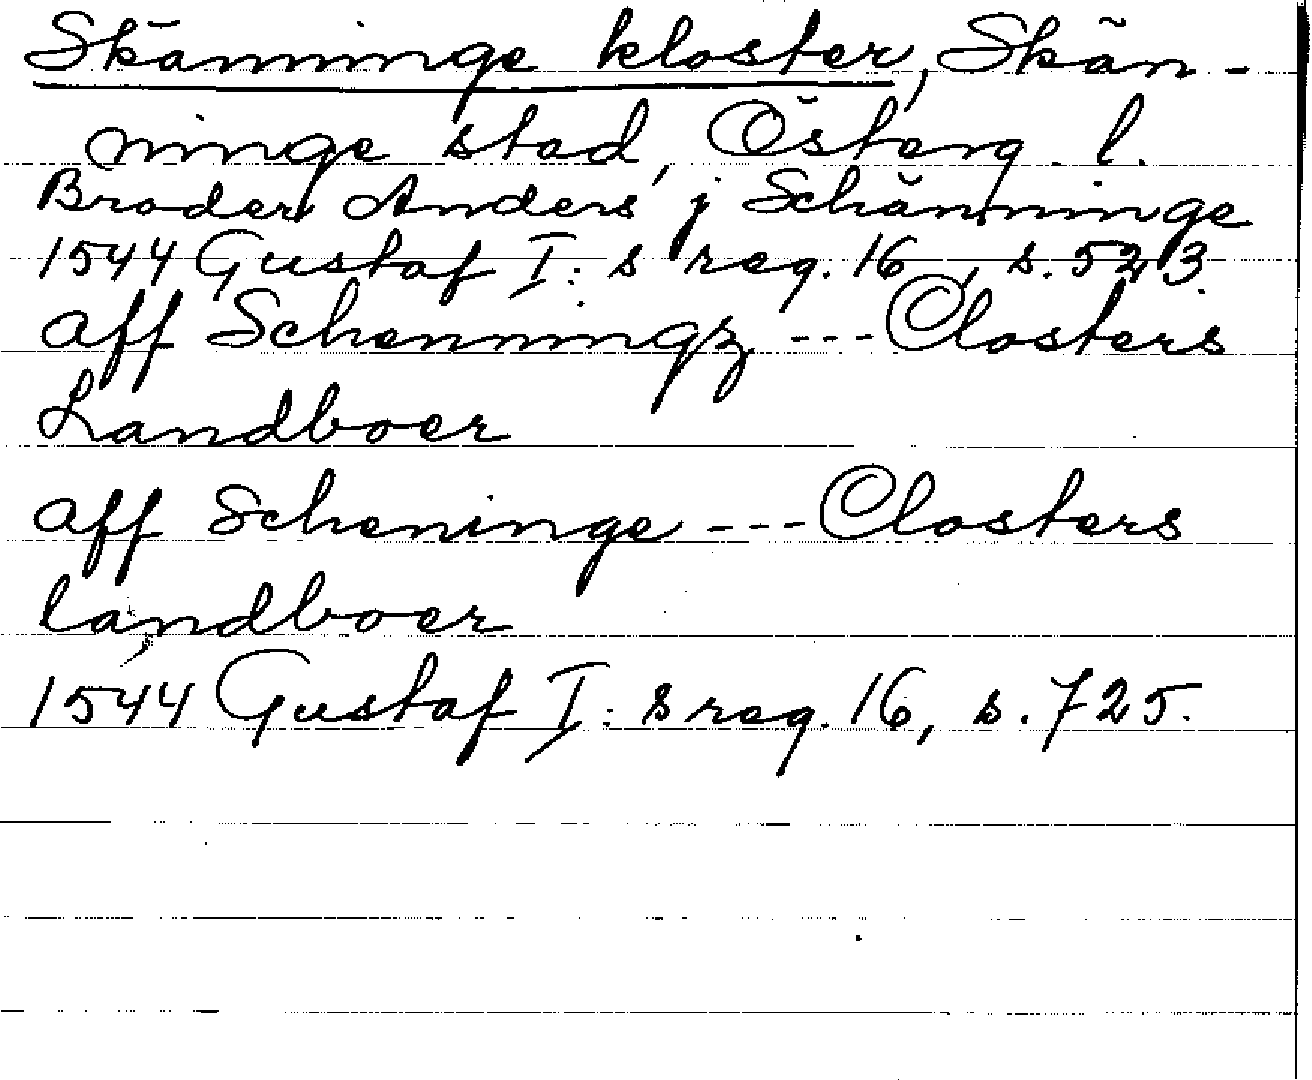 Skänninge kloster, Skän-
ninge stad, Österg. l.
Broder Anders j Schänninge
1544 Gustaf I: s reg. 16, s. 523.
aff Schenningz --- Closters
Landboer
aff Scheninge --- Closters
landboer
1544 Gustaf I: s reg. 16, s. 725.